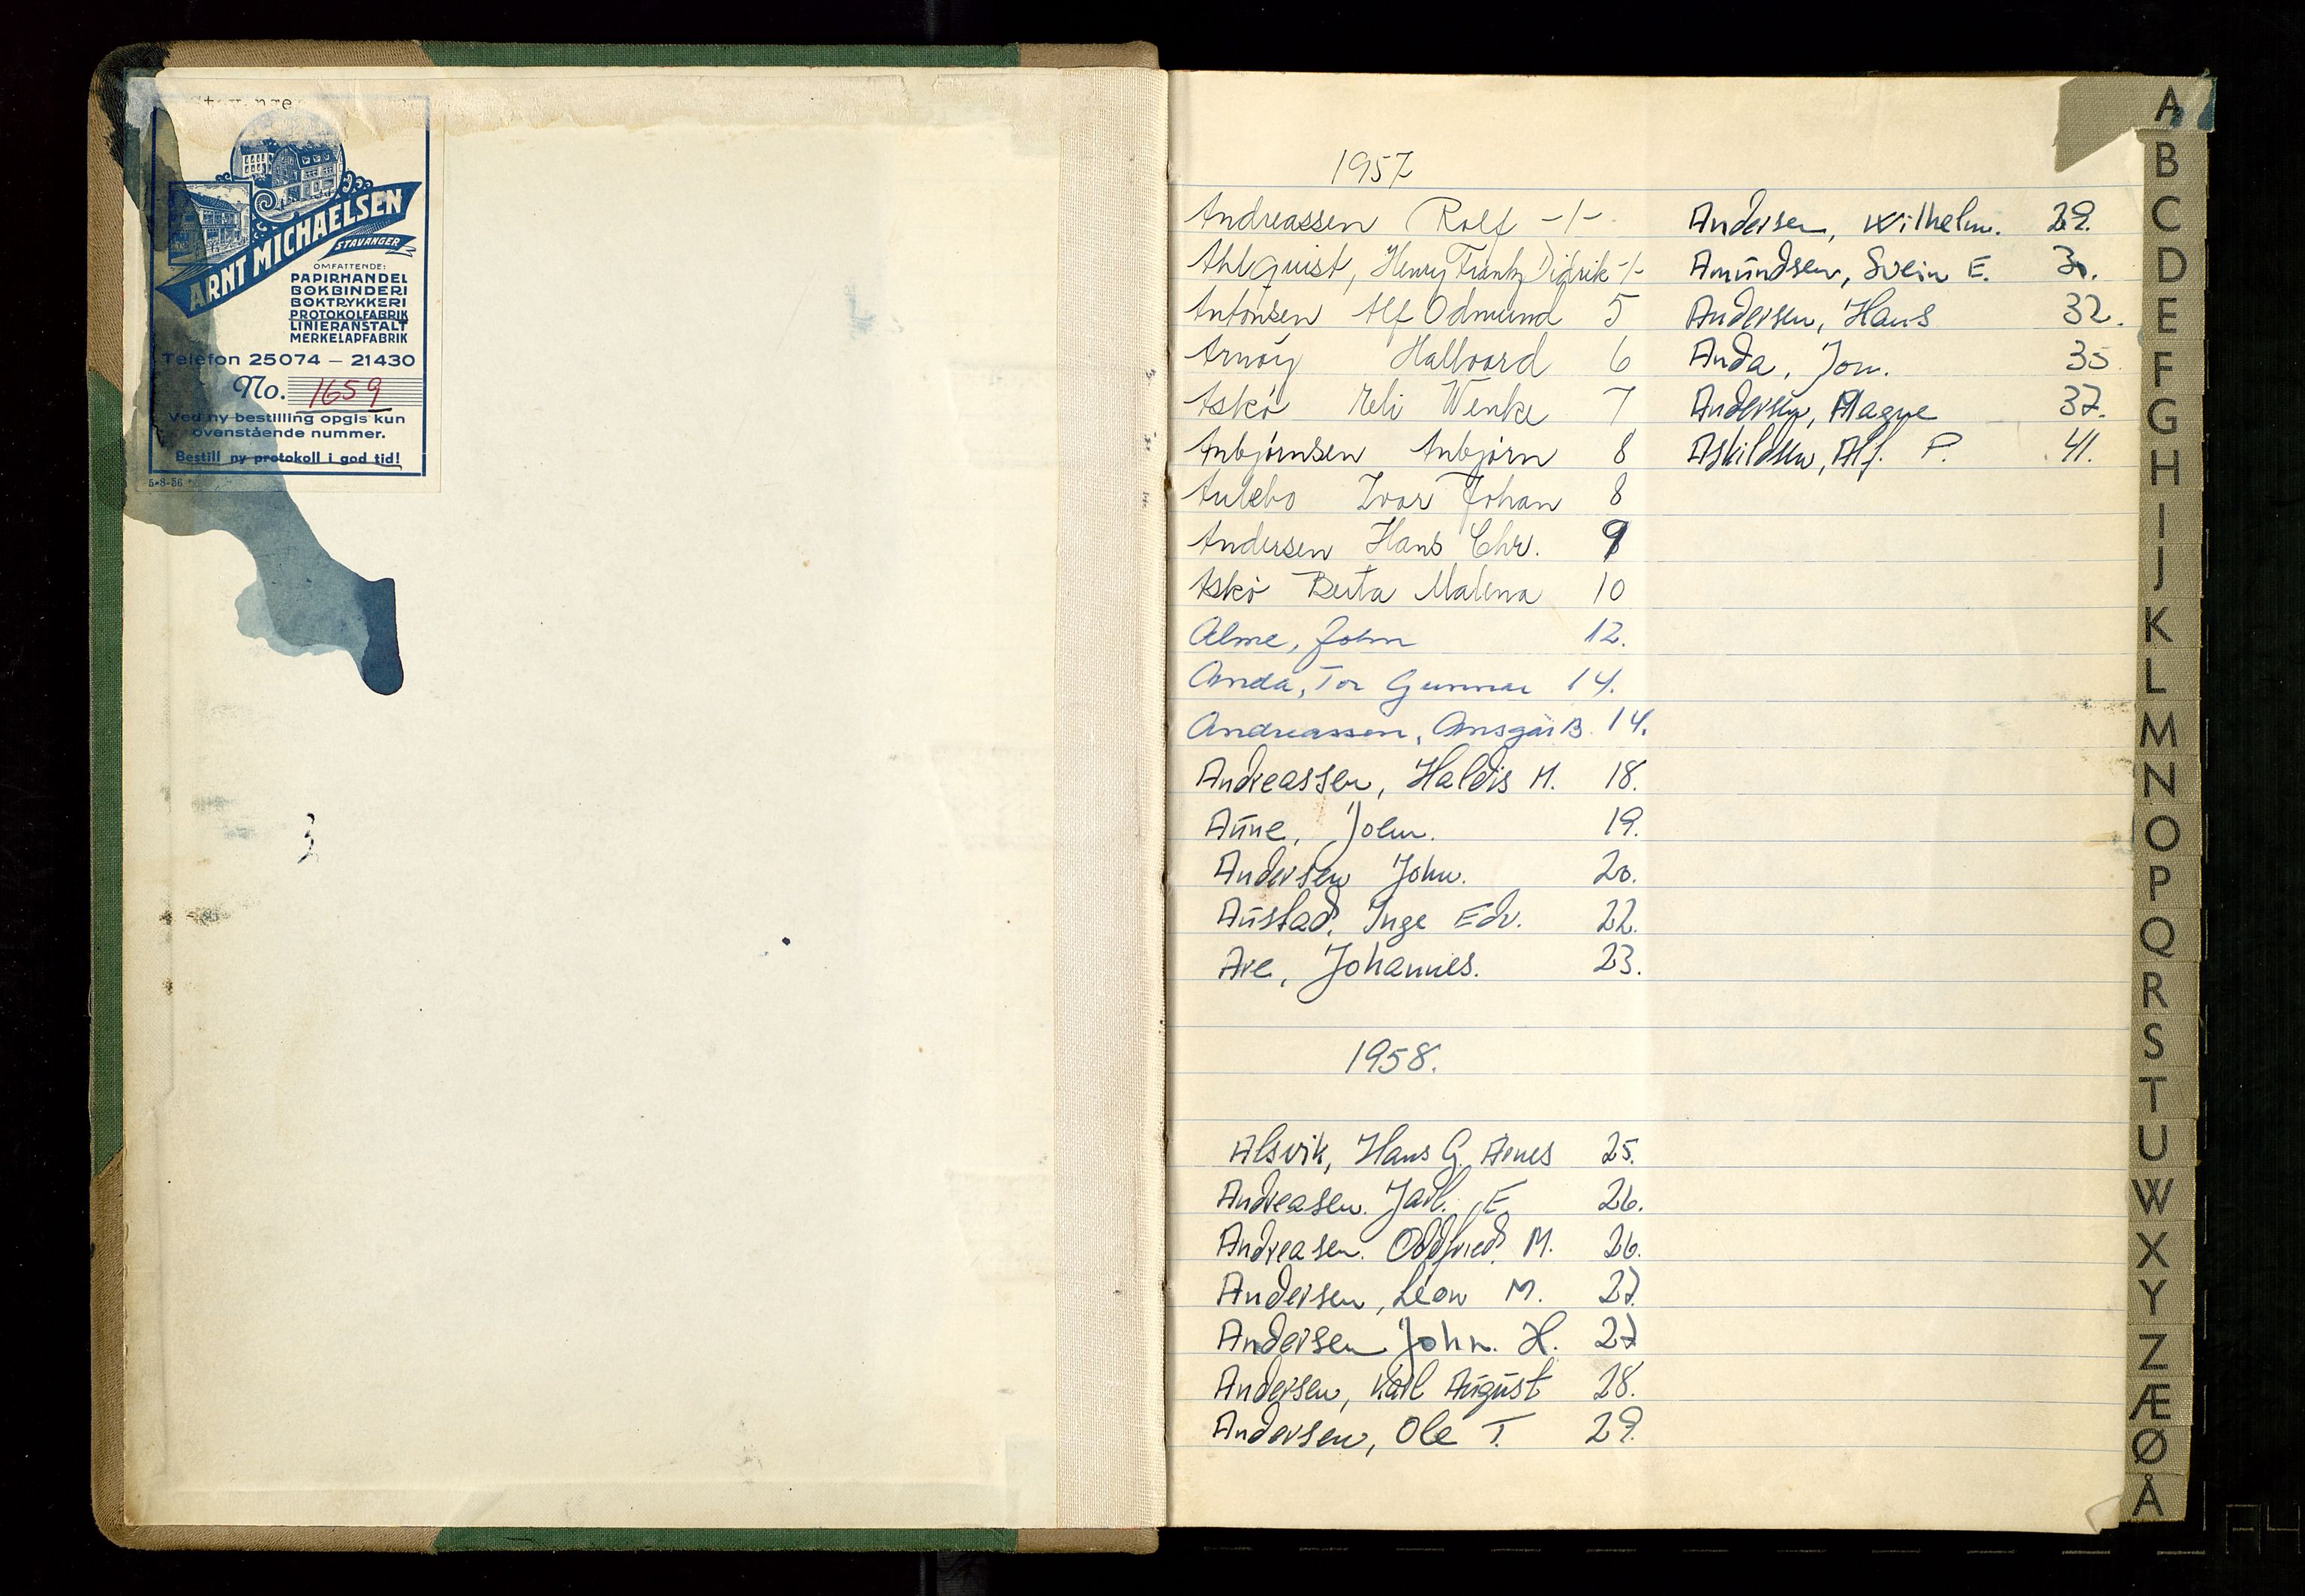 ARNT MICHAELSEN
STAVANGER
OMFATTENDE:
PAPIRHANDEL
BOKBINDERI
BOKTRYKKERI
PROTOKOLFABRIK
LINIERANSTALT
MERKELAPFABRIK
Telefon 25074 — 21430
No. 1659
Ved ny bestilling opgis kun
ovenstående nummer.
Bestill ny protokoll i god tid!
5-8-56
1957
Andreassen Rolf -/-
Ahlquist, Henry Frantz Didrik -/-
Antonsen Alf Odmund 5
Arnøy Hallvard 6
Askø Reli Wenke 7
Anbjørnsen Anbjørn 8
Aulebo Ivar Johan 8
Andersen Hans Chr. 9
Askø Berta Malena 10
Alme, John 12.
Anda, Tor Gunnar 14.
Andreassen, Ansgar B. 14.
Andreassen, Haldis M. 18.
Aune, John. 19.
Andersen John. 20.
Austad, Inge Edv. 22.
Are, Johannes. 23.
1958.
Alsvik, Hans G. Agnes 25.
Andreasen. Jarl. E. 26.
Andreasen. Oddfried. M. 26.
Andersen, Leon M. 27.
Andersen John. H. 27
Andersen, Karl August 28.
Andersen, Ole T. 29.
Andersen, Wilhelm. 29.
Amundsen, Svein E. 31.
Andersen, Hans 32.
Anda, Jon. 35
Andersen, Magne 37.
Askildsen, Alf. P. 41.
A
B
C
D
E
F
G
H
I
J
K
L
M
N
O
P
Q
R
S
T
U
W
X
Y
Z
Æ
Ø
Å